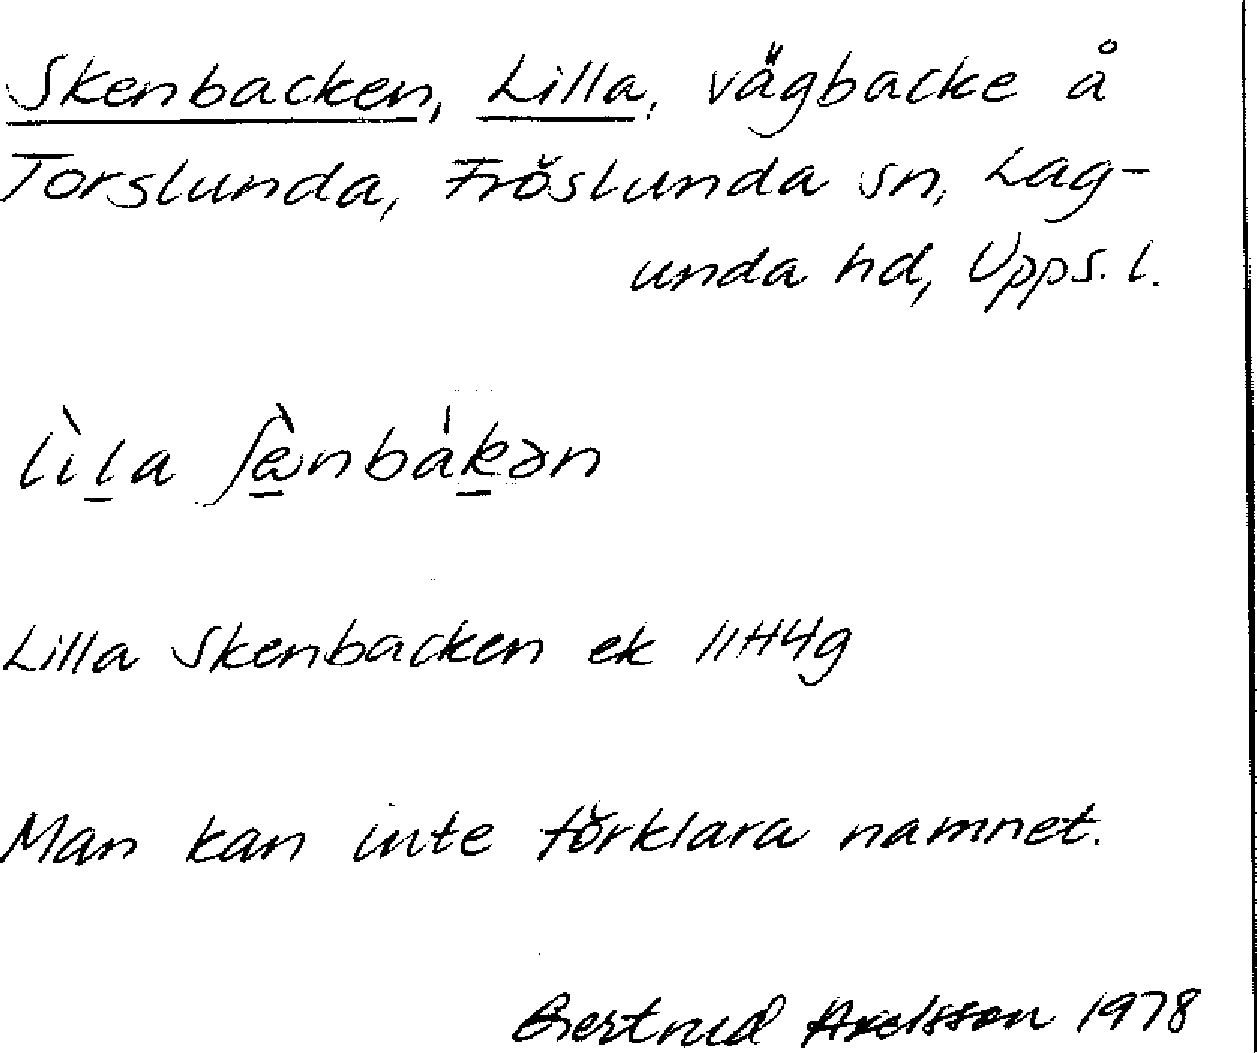 Skenbacken, Lilla, vägbacke å
Torslunda, Fröslunda sn, Lag-
unda hd, Upps. l.
lìla ʃæ̀nbàkən
Lilla Skenbacken ek 11H4g
Man kan inte förklara namnet.
Gertrud Axelsson 1978